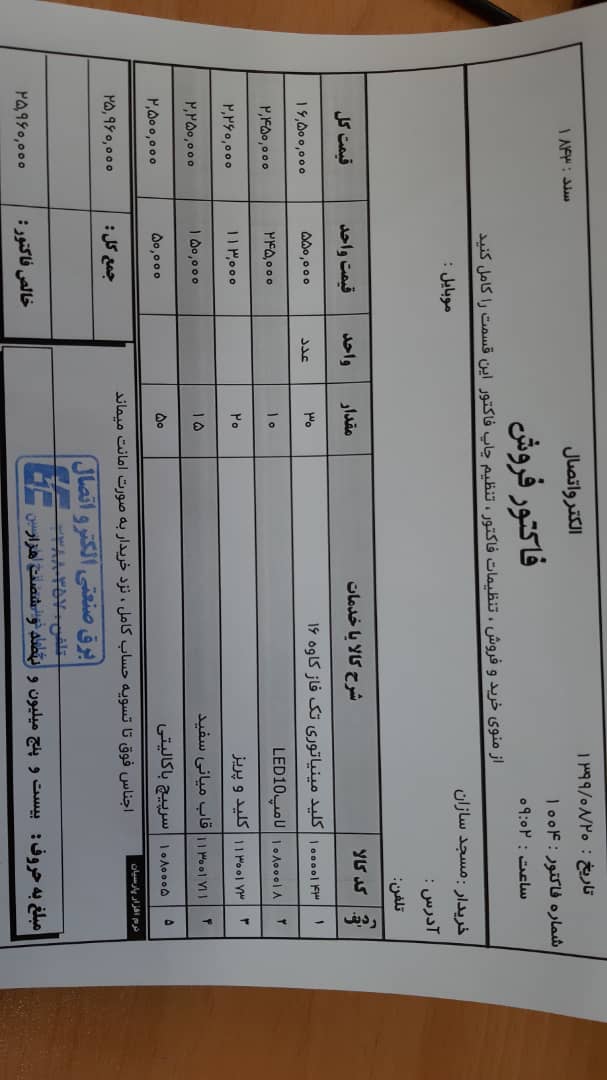 الکترو اتصال
فاکتور فروش
تاریخ : ۱۳۹۹/۰۸/۲۰
شماره فاکتور : ۱۰۰۴
ساعت : ۰۹:۰۲
سند : ۱۸۴۳
از منوی خرید و فروش ، تنظیمات فاکتور ، تنظیم چاپ فاکتور این قسمت را کامل کنید
خریدار : مسجد سازان
آدرس :
تلفن:
موبایل :
ردیف کد کالا شرح کالا یا خدمات مقدار واحد قیمت واحد قیمت کل
۱ ۱۰۰۰۰۱۴۳ کلید مینیاتوری تک فاز کاوه ۱۶ ۳۰ عدد ۵۵۰,۰۰۰ ۱۶,۵۰۰,۰۰۰
۲ ۱۰۸۰۰۰۱۸ لامپLED10 ۱۰ ۲۴۵,۰۰۰ ۲,۴۵۰,۰۰۰
۳ ۱۱۳۰۰۱۷۳ کلید و پریز ۲۰ ۱۱۳,۰۰۰ ۲,۲۶۰,۰۰۰
۴ ۱۱۳۰۰۱۷۱۱ قاب میانی سفید ۱۵ ۱۵۰,۰۰۰ ۲,۲۵۰,۰۰۰
۵ ۱۰۸۰۰۰۵ سرپیچ باکالیتی ۵۰ ۵۰,۰۰۰ ۲,۵۰۰,۰۰۰
نرم افزار پارسیان
اجناس فوق تا تسویه حساب کامل ، نزد خریدار به صورت امانت میماند
جمع کل : ۲۵,۹۶۰,۰۰۰
برق صنعتی الکترو اتصال
تلفن :
مبلغ به حروف : بیست و پنج میلیون و نهصد و شصت هزار
خالص فاکتور : ۲۵,۹۶۰,۰۰۰